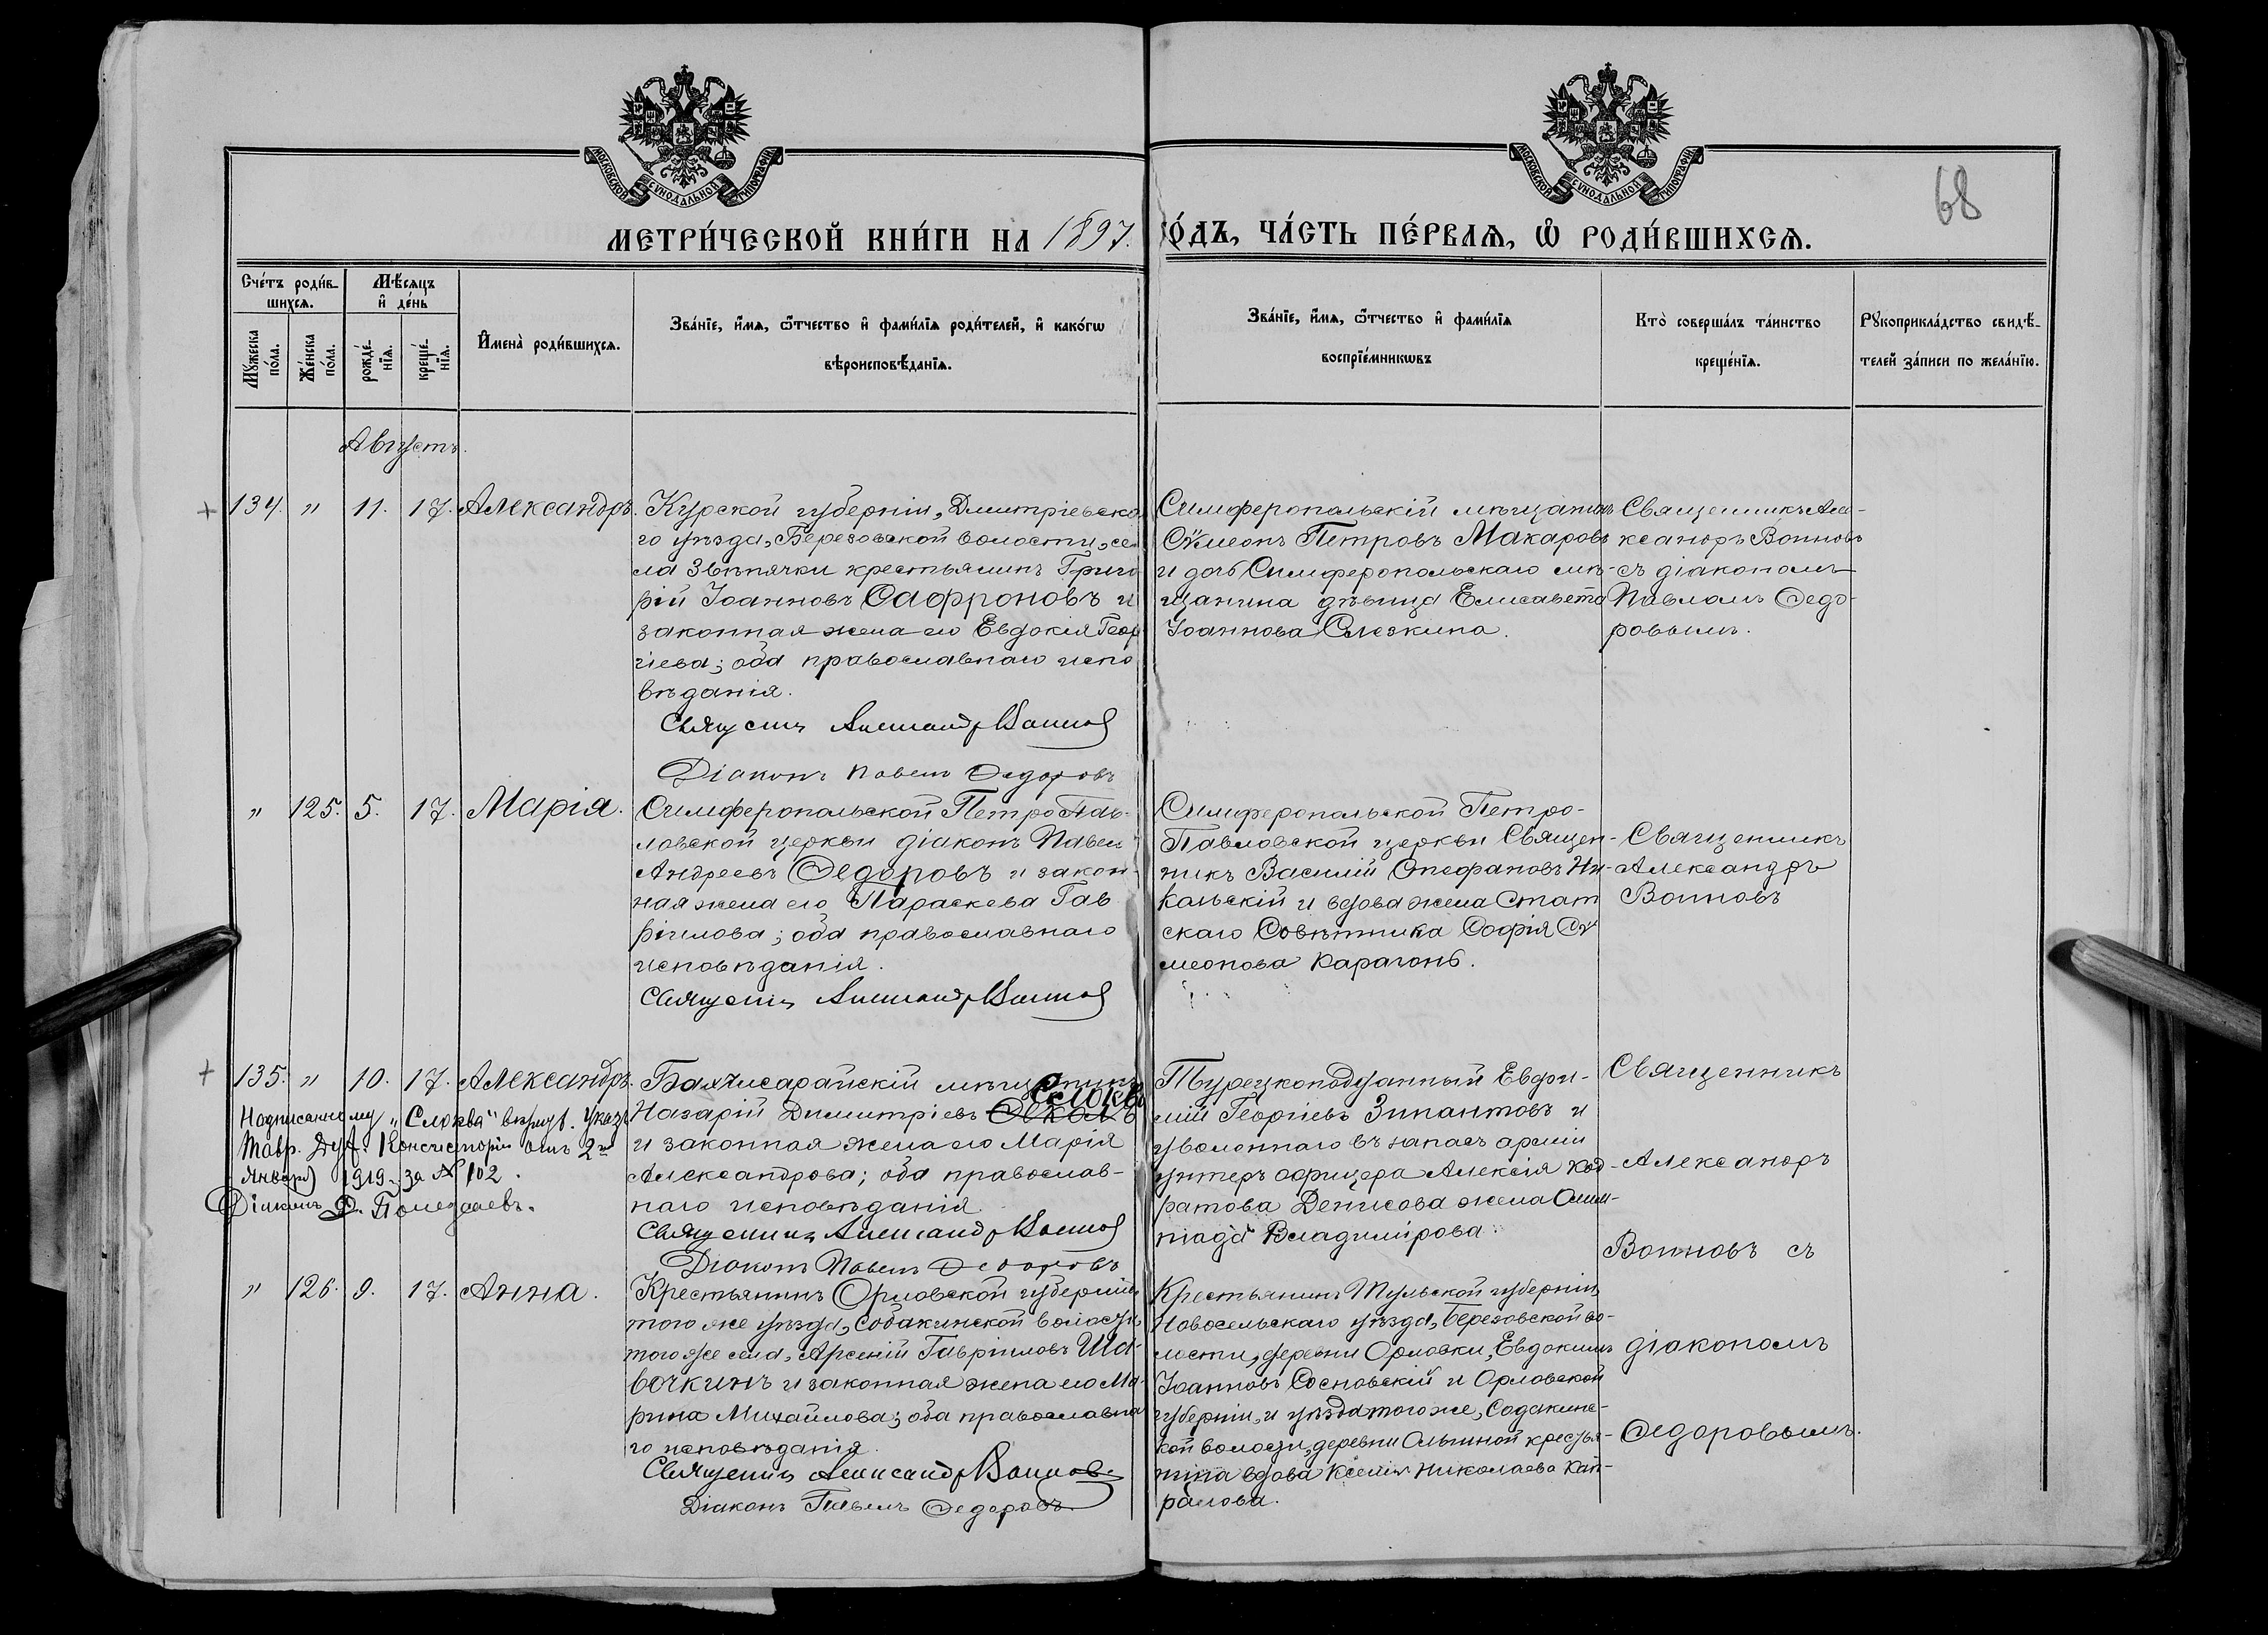 МОСКОВСКОЙ СѴНОДАЛЬНОЙ ТИПОГРАФІИ
МОСКОВСКОЙ СѴНОДАЛЬНОЙ ТИПОГРАФІИ
68
МЕТРИ́ЧЕСКОЙ КНИ́ГИ НА 1897. ГО́ДЪ, ЧА́СТЬ ПЕ́РВАѦ, Ѡ҆ РОДИ́ВШИХСѦ.
Сче́тъ роди́в-
шихсѧ.
Мѣ́сѧцъ
и҆ де́нь
Мꙋ́жеска
по́ла.
Же́нска
по́ла.
рожде́-
нїѧ.
креще́-
нїѧ.
И҆мена̀ роди́вшихсѧ.
Зва́нїе, и҆́мѧ, ѻ҆́тчество и҆ фамѝлїѧ роди́телей, и҆ како́гѡ
вѣроисповѣ́данїѧ.
Зва́нїе, и҆́мѧ, ѻ҆́тчество и҆ фами́лїѧ
воспрїе́мникѡвъ
Кто̀ соверша́лъ та́инство
креще́нїѧ.
Рꙋкоприкла́дство свидѣ́-
телей за́писи по жела́нїю.
Августъ.
134. " 11. 17. Александръ.
Курской губерніи, Дмитріевска-
го уѣзда, Березовской волости, се-
ла Звѣнячки крестьянинъ Григо
рій Іоанновъ Сафроновъ и
законная жена его Евдокія Геор
гіева; оба православнаго испо
вѣданія.
Священ Александр Воинов
Діаконъ Павелъ Ѳедоровъ
Симферопольскій мѣщанинъ
Сѵмеонъ Петровъ Макаровъ
и дочь Симферопольскаго мѣ-
щанина дѣвица Елисавета
Іоаннова Слезкина.
Священникъ Але-
ксандръ Воиновъ
съ діакономъ
Павломъ Ѳедо-
ровымъ.
" 125. 5. 17. Марія.
Симферопольской Петро Пав-
ловской церкви діаконъ Павелъ
Андреевъ Ѳедоровъ и закон-
ная жена его Параскева Гав
ріилова; оба православнаго
исповѣданія.
Священ Александр Воинов
Симферопольской Петро-
Павловской церкви Священ-
никъ Василій Стефановъ Ни-
кольскій и вдова жена Стат
скаго Совѣтника Софія Сѵ
меонова Карагонъ.
Священникъ
Александръ
Воиновъ
135. " 10. 17. Александръ.
Надписанному "Слюква" вѣрить. Указъ
Тавр. Дух. Консисторіи отъ 2го
Января 1919 г. за № 102.
Діаконъ
Бахчисарайскій мѣщанинъ
Назарій Димитріевъ
и законная жена его Марія
Александрова; оба православ-
наго исповѣданія
Священникъ Александр Воинов
Діаконъ Павелъ Ѳедоровъ
Турецкоподданный Евфи-
мій Георгіевъ Зипантовъ и
уволеннаго въ запасъ арміи
унтеръ офицера Алексія Код-
ратова Денисова жена Олим-
піада Владимірова.
Священникъ
Александръ
Воиновъ съ
" 126. 9. 17. Анна.
Крестьянинъ Орловской губерніи
того же уѣзда, Собакинской волости,
того же села, Арсеній Гавріиловъ Ша-
вочкинъ и законная жена его Ма-
рина Михайлова; оба православна
го исповѣданія.
Священ Александр Воинов
Діаконъ Павелъ Ѳедоровъ
Крестьянинъ Тульской губерніи
Новосельскаго уѣзда, Березовской во-
лости, деревни Орловки, Евдокимъ
Іоанновъ Сосновскій и Орловской
губерніи, и уѣзда того же, Собакинс-
кой волости, деревни Ольгиной крестья-
нина вдова Ксенія Николаева Кап-
ралова.
діакономъ
Ѳедоровымъ.